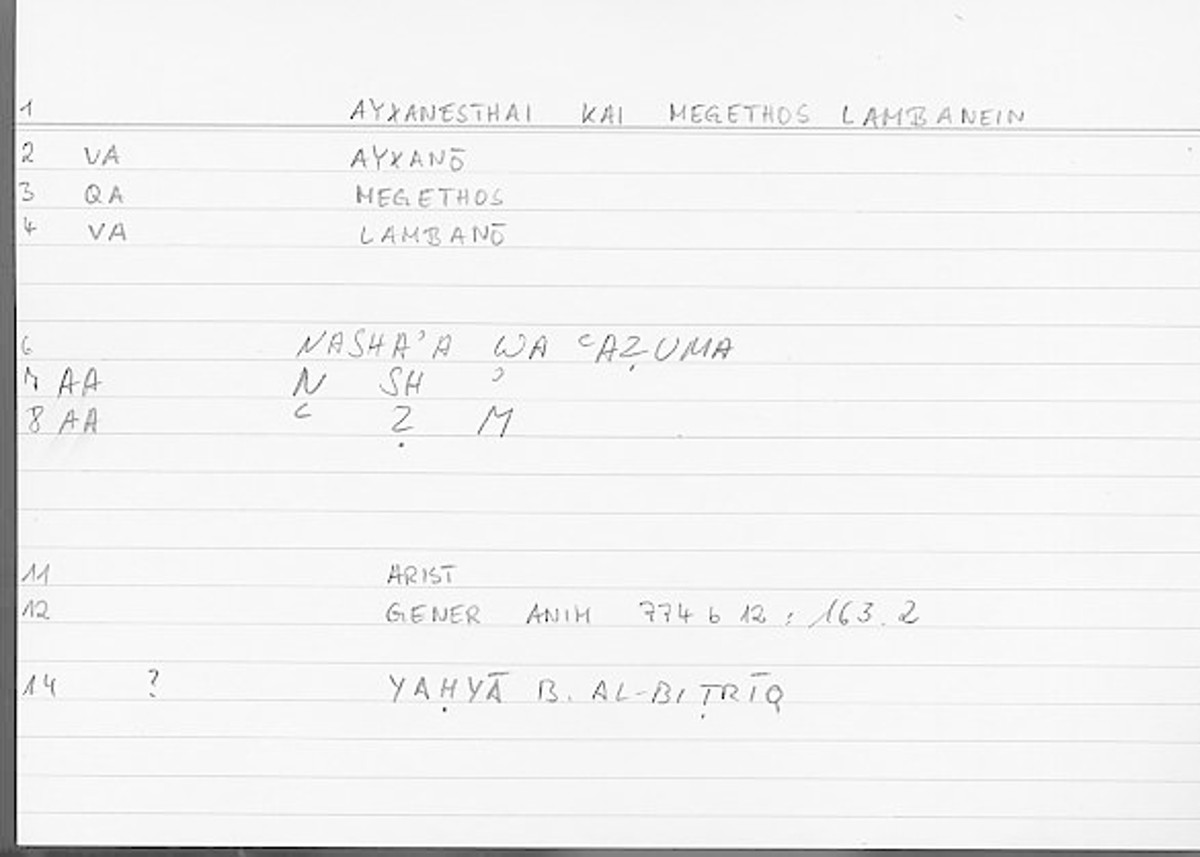 1 AYXANESTHAI KAI MEGETHOS LAMBANEIN
2 VA AYXANŌ
3 QA MEGETHOS
4 VA LAMBANŌ
6 NASHAʾA WA ʿAẒUMA
7 AA N SH ʾ
8 AA ʿ Ẓ M
11 ARIST
12 GENER ANIM 774 b 12 ; 163.2
14 ? YAḤYĀ B. AL-BIṬRĪQ